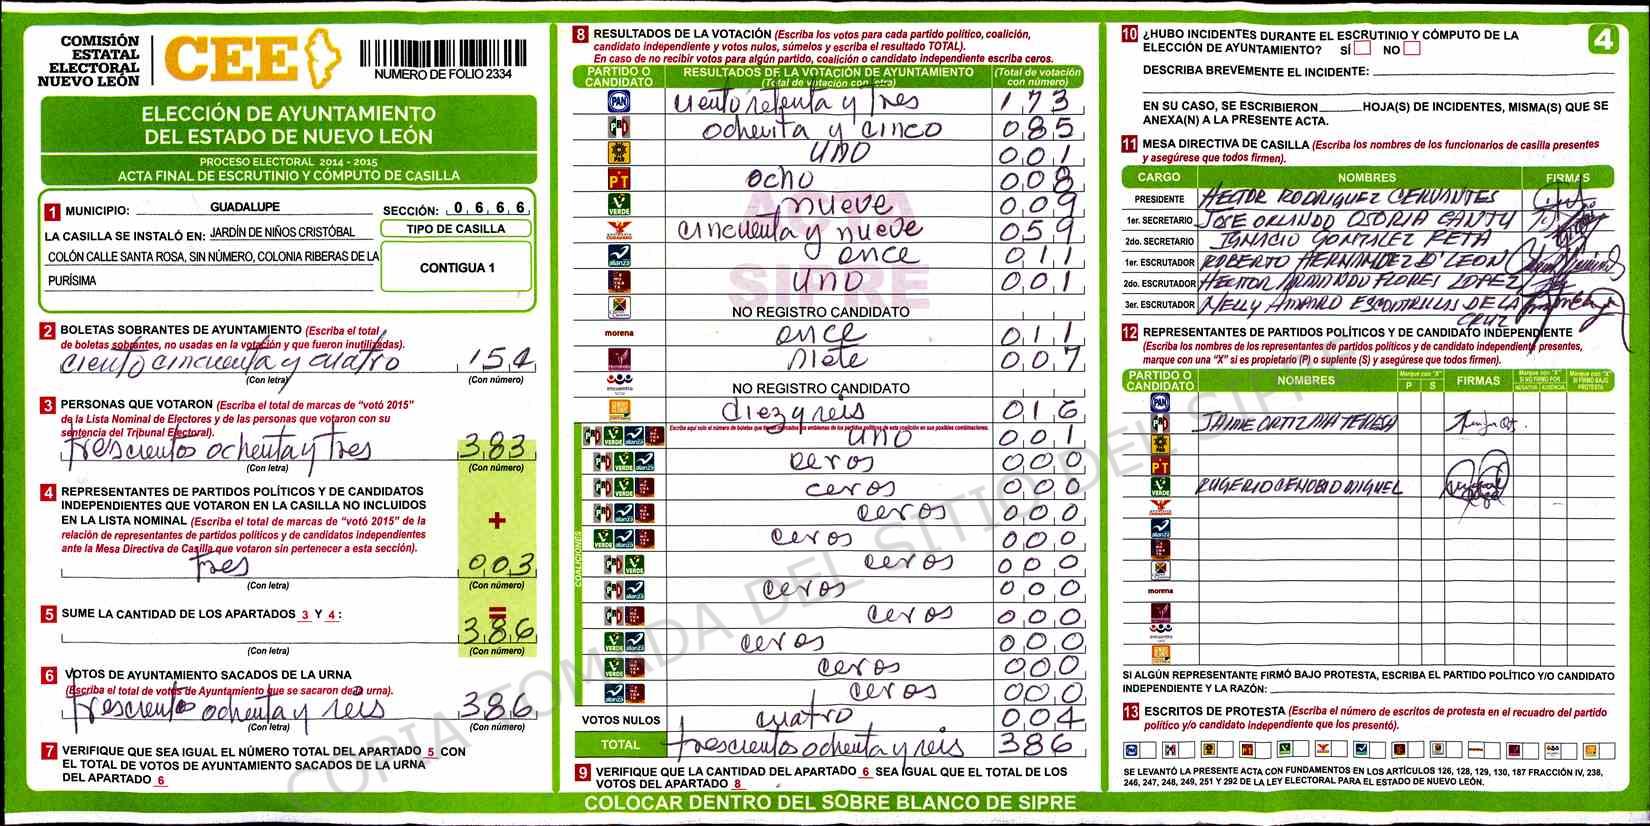 COMISIÓN
ESTATAL
ELECTORAL
NUEVO LEÓN
CEE
NUMERO DE FOLIO 2334
ELECCIÓN DE AYUNTAMIENTO
DEL ESTADO DE NUEVO LEÓN
PROCESO ELECTORAL 2014 - 2015
ACTA FINAL DE ESCRUTINIO Y CÓMPUTO DE CASILLA
1 MUNICIPIO: GUADALUPE SECCIÓN: 0 6 6 6
LA CASILLA SE INSTALÓ EN: JARDÍN DE NIÑOS CRISTÓBAL
COLÓN CALLE SANTA ROSA, SIN NÚMERO, COLONIA RIBERAS DE LA
PURÍSIMA
TIPO DE CASILLA
CONTIGUA 1
2 BOLETAS SOBRANTES DE AYUNTAMIENTO (Escriba el total
de boletas sobrantes, no usadas en la votación y que fueron inutilizadas).
ciento cincuenta y cuatro 154
(Con letra) (Con número)
3 PERSONAS QUE VOTARON (Escriba el total de marcas de “votó 2015”
de la Lista Nominal de Electores y de las personas que votaron con su
sentencia del Tribunal Electoral).
trescientos ochenta y tres 383
(Con letra) (Con número)
4 REPRESENTANTES DE PARTIDOS POLÍTICOS Y DE CANDIDATOS
INDEPENDIENTES QUE VOTARON EN LA CASILLA NO INCLUIDOS
EN LA LISTA NOMINAL (Escriba el total de marcas de “votó 2015” de la
relación de representantes de partidos políticos y de candidatos independientes
ante la Mesa Directiva de Casilla que votaron sin pertenecer a esta sección).
+
tres 003
(Con letra) (Con número)
5 SUME LA CANTIDAD DE LOS APARTADOS 3 Y 4 :
=
386
(Con letra) (Con número)
6 VOTOS DE AYUNTAMIENTO SACADOS DE LA URNA
(Escriba el total de votos de Ayuntamiento que se sacaron de la urna).
trescientos ochenta y seis 386
(Con letra) (Con número)
7 VERIFIQUE QUE SEA IGUAL EL NÚMERO TOTAL DEL APARTADO 5 CON
EL TOTAL DE VOTOS DE AYUNTAMIENTO SACADOS DE LA URNA
DEL APARTADO 6
8 RESULTADOS DE LA VOTACIÓN (Escriba los votos para cada partido político, coalición,
candidato independiente y votos nulos, súmelos y escriba el resultado TOTAL).
En caso de no recibir votos para algún partido, coalición o candidato independiente escriba ceros.
PARTIDO O CANDIDATO RESULTADOS DE LA VOTACIÓN DE AYUNTAMIENTO (Total de votación con letra) (Total de votación con número)
PAN ciento setenta y tres 173
PRD ochenta y cinco 085
UNO 001
PT ocho 008
VERDE nueve 009
cincuenta y nueve 059
alianza once 011
uno 001
NO REGISTRO CANDIDATO
morena once 011
siete 007
encuentro NO REGISTRO CANDIDATO
diez y seis 016
uno 001
ceros 000
ceros 000
ceros 000
ceros 000
ceros 000
ceros 000
ceros 000
ceros 000
ceros 000
ceros 000
COALICIONES
VOTOS NULOS cuatro 004
TOTAL trescientos ochenta y seis 386
9 VERIFIQUE QUE LA CANTIDAD DEL APARTADO 6 SEA IGUAL QUE EL TOTAL DE LOS
VOTOS DEL APARTADO 8
COLOCAR DENTRO DEL SOBRE BLANCO DE SIPRE
ACTA
SIPRE
COPIA TOMADA DEL SITIO DEL SIPRE
10 ¿HUBO INCIDENTES DURANTE EL ESCRUTINIO Y CÓMPUTO DE LA
ELECCIÓN DE AYUNTAMIENTO? SÍ NO
4
DESCRIBA BREVEMENTE EL INCIDENTE:
EN SU CASO, SE ESCRIBIERON HOJA(S) DE INCIDENTES, MISMA(S) QUE SE
ANEXA(N) A LA PRESENTE ACTA.
11 MESA DIRECTIVA DE CASILLA (Escriba los nombres de los funcionarios de casilla presentes
y asegúrese que todos firmen).
CARGO NOMBRES FIRMAS
PRESIDENTE HECTOR RODRIGUEZ CERVANTES
1er. SECRETARIO JOSE ORLINDO OSORIA CANTU
2do. SECRETARIO IGNACIO GONZALEZ PEÑA
1er. ESCRUTADOR ROBERTO HERNANDEZ D' LEON
2do. ESCRUTADOR HECTOR ARMANDO FLORES LOPEZ
3er. ESCRUTADOR NELLY AMARO DE LA
CRUZ
12 REPRESENTANTES DE PARTIDOS POLÍTICOS Y DE CANDIDATO INDEPENDIENTE
(Escriba los nombres de los representantes de partidos políticos y de candidato independiente presentes,
marque con una “X” si es propietario (P) o suplente (S) y asegúrese que todos firmen).
PARTIDO O CANDIDATO NOMBRES Marque con "X" P S FIRMAS Marque con "X" SI NO FIRMÓ POR NEGATIVA AUSENCIA Marque con "X" SI FIRMÓ BAJO PROTESTA
PAN
JAIME ORTIZ MA TERESA
PT
VERDE RUGERIO CENOBIO MIGUEL
morena
encuentro
SI ALGÚN REPRESENTANTE FIRMÓ BAJO PROTESTA, ESCRIBA EL PARTIDO POLÍTICO Y/O CANDIDATO
INDEPENDIENTE Y LA RAZÓN:
13 ESCRITOS DE PROTESTA (Escriba el número de escritos de protesta en el recuadro del partido
político y/o candidato independiente que los presentó).
SE LEVANTÓ LA PRESENTE ACTA CON FUNDAMENTOS EN LOS ARTÍCULOS 126, 128, 129, 130, 187 FRACCIÓN IV, 238,
246, 247, 248, 249, 251 Y 292 DE LA LEY ELECTORAL PARA EL ESTADO DE NUEVO LEÓN.